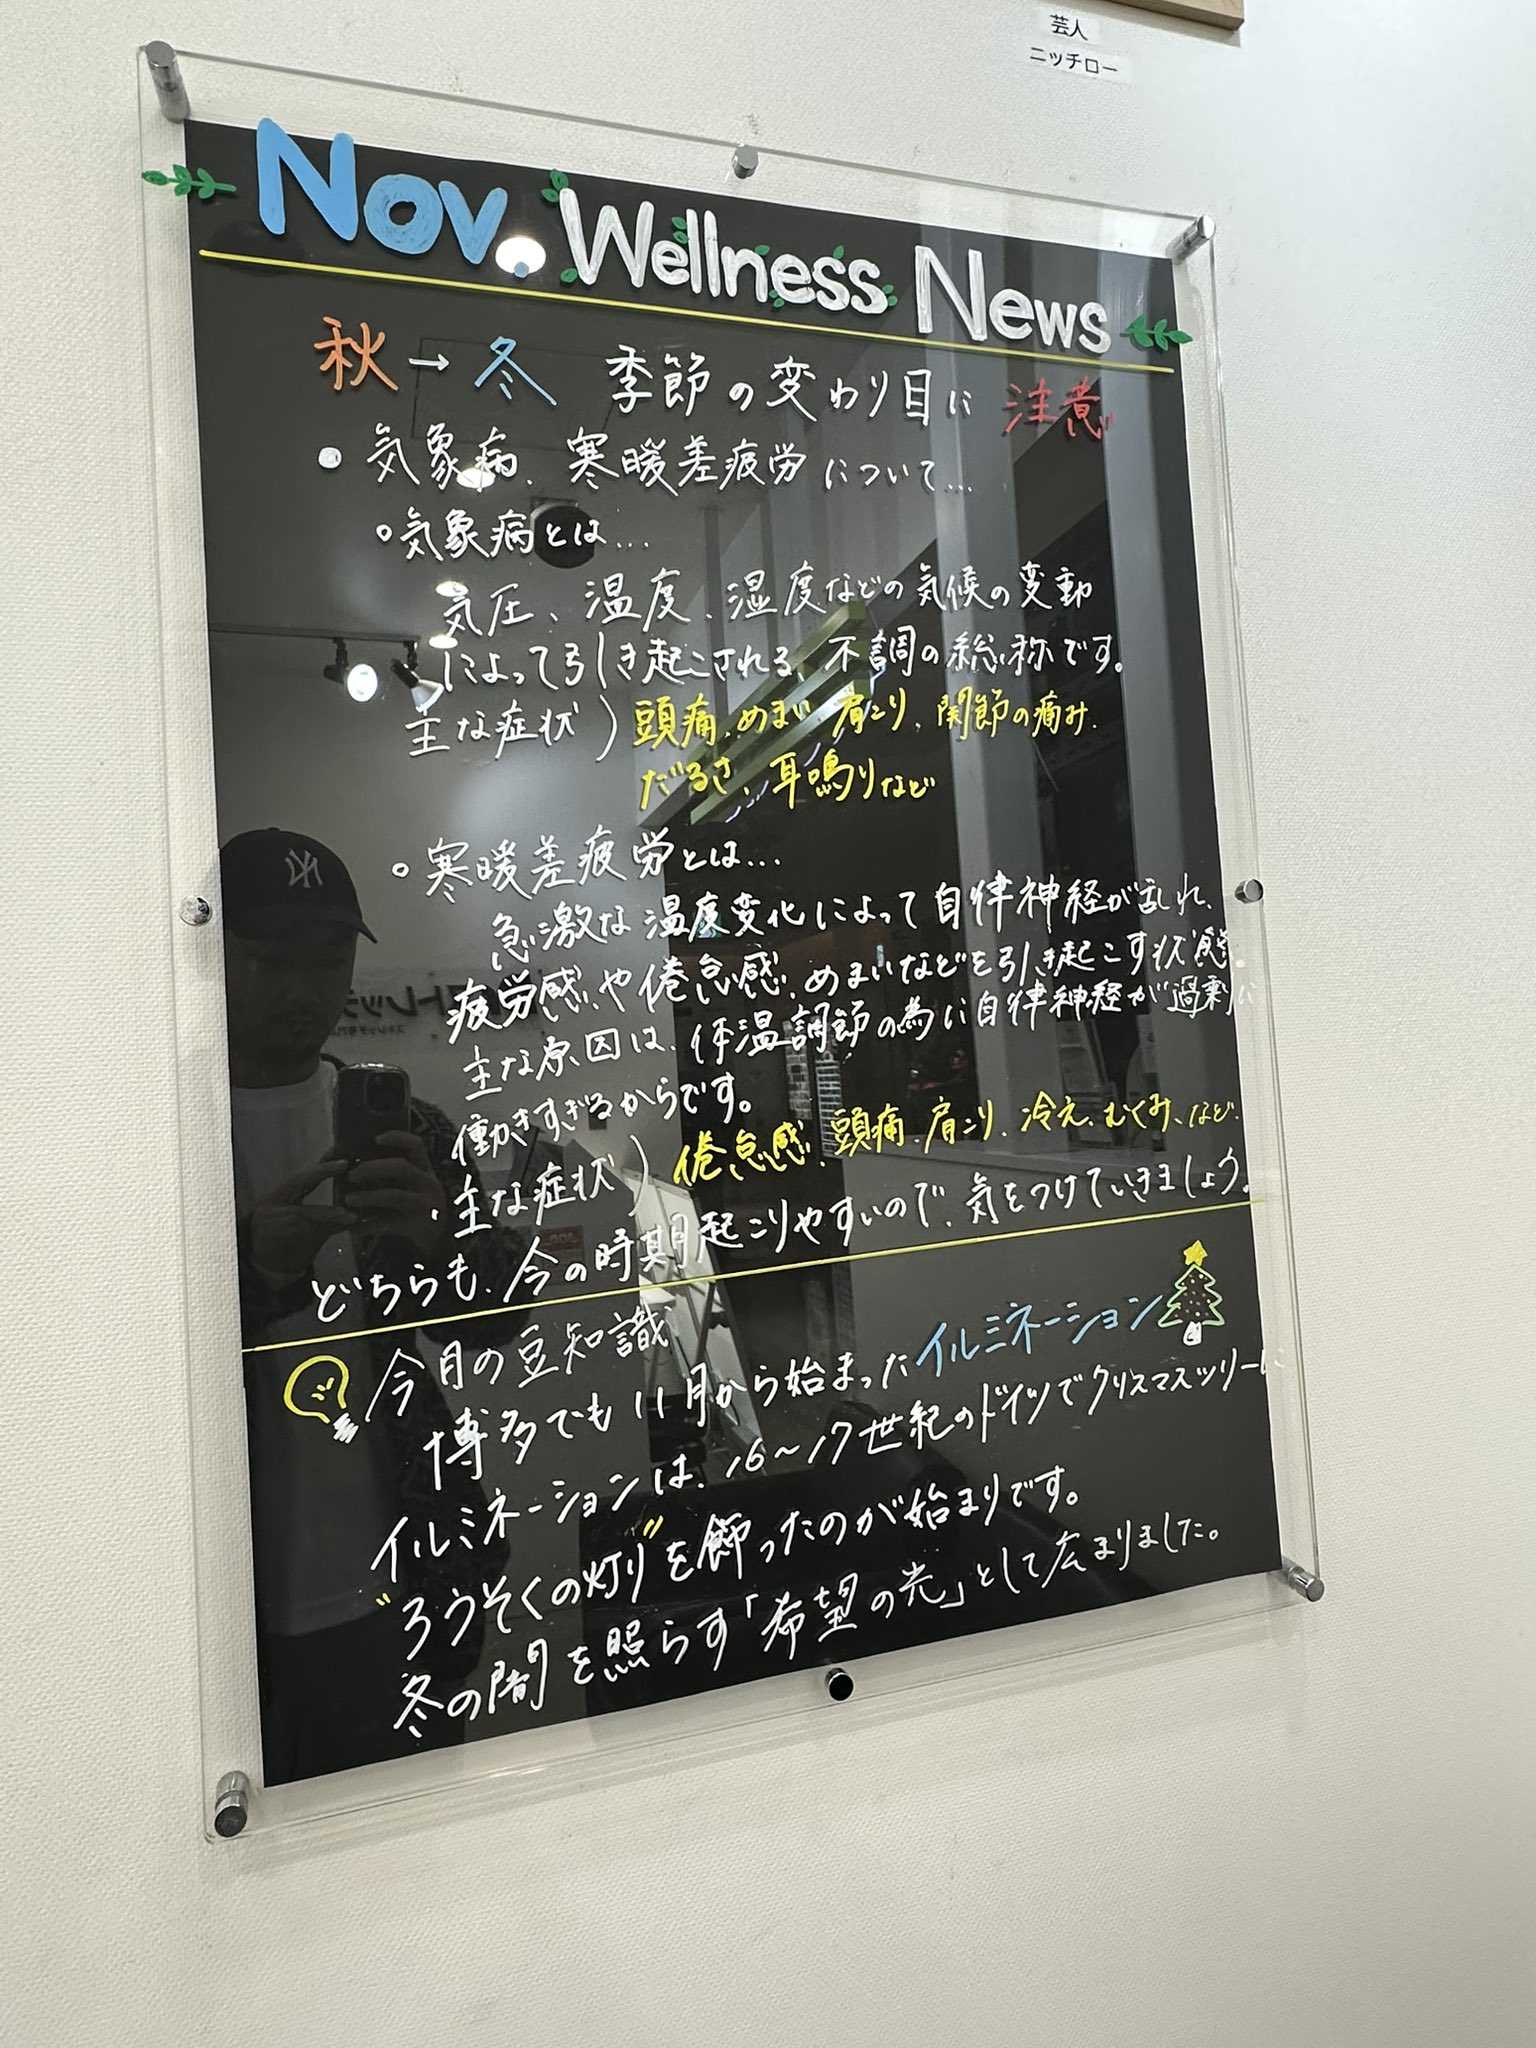 芸人
ニッチロー
Nov. Wellness News
秋→冬 季節の変わり目に 注意
・気象病、寒暖差疲労について...
○気象病とは...
気圧、温度、湿度などの気候の変動
によって引き起こされる、不調の総称です。
主な症状）頭痛、めまい、肩こり、関節の痛み、
だるさ、耳鳴りなど
○寒暖差疲労とは...
急激な温度変化によって自律神経が乱れ、
疲労感や倦怠感、めまいなどを引き起こす状態。
主な原因は、体温調節の為に自律神経が過剰に
働きすぎるからです。
・主な症状）倦怠感、頭痛、肩こり、冷え、むくみ、など、
どちらも、今の時期起こりやすいので、気をつけていきましょう。
今月の豆知識
博多でも11月から始まったイルミネーション
イルミネーションは、16〜17世紀のドイツでクリスマスツリーに
"ろうそくの灯り"を飾ったのが始まりです。
冬の闇を照らす「希望の光」として広まりました。